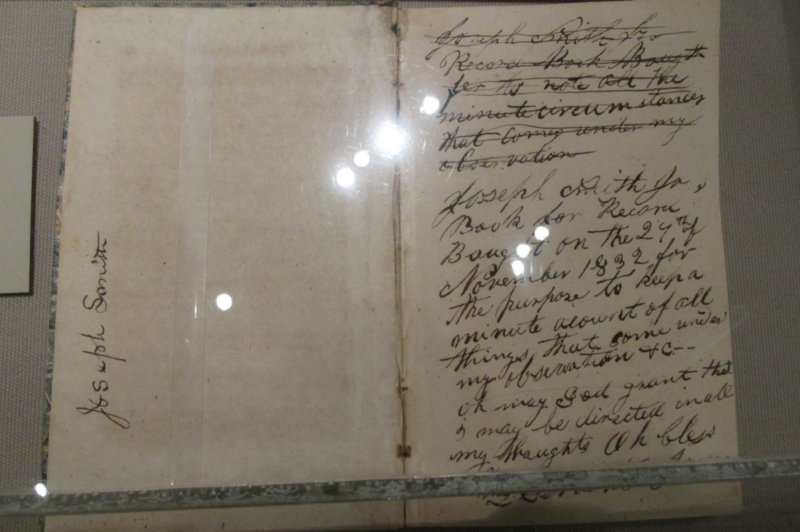 Joseph Smith
Joseph Smith Jrs
Record Book Baught
for to note all the
minute circumstances
that comes under my
observation
Joseph Smith Jrs
Book for Record
Baught on the 27th of
November 1832 for
the purpose to keep a
minute acount of all
things that come under
my obsevation &c--
oh may God grant that
I may be directed in all
my thaughts Oh bless